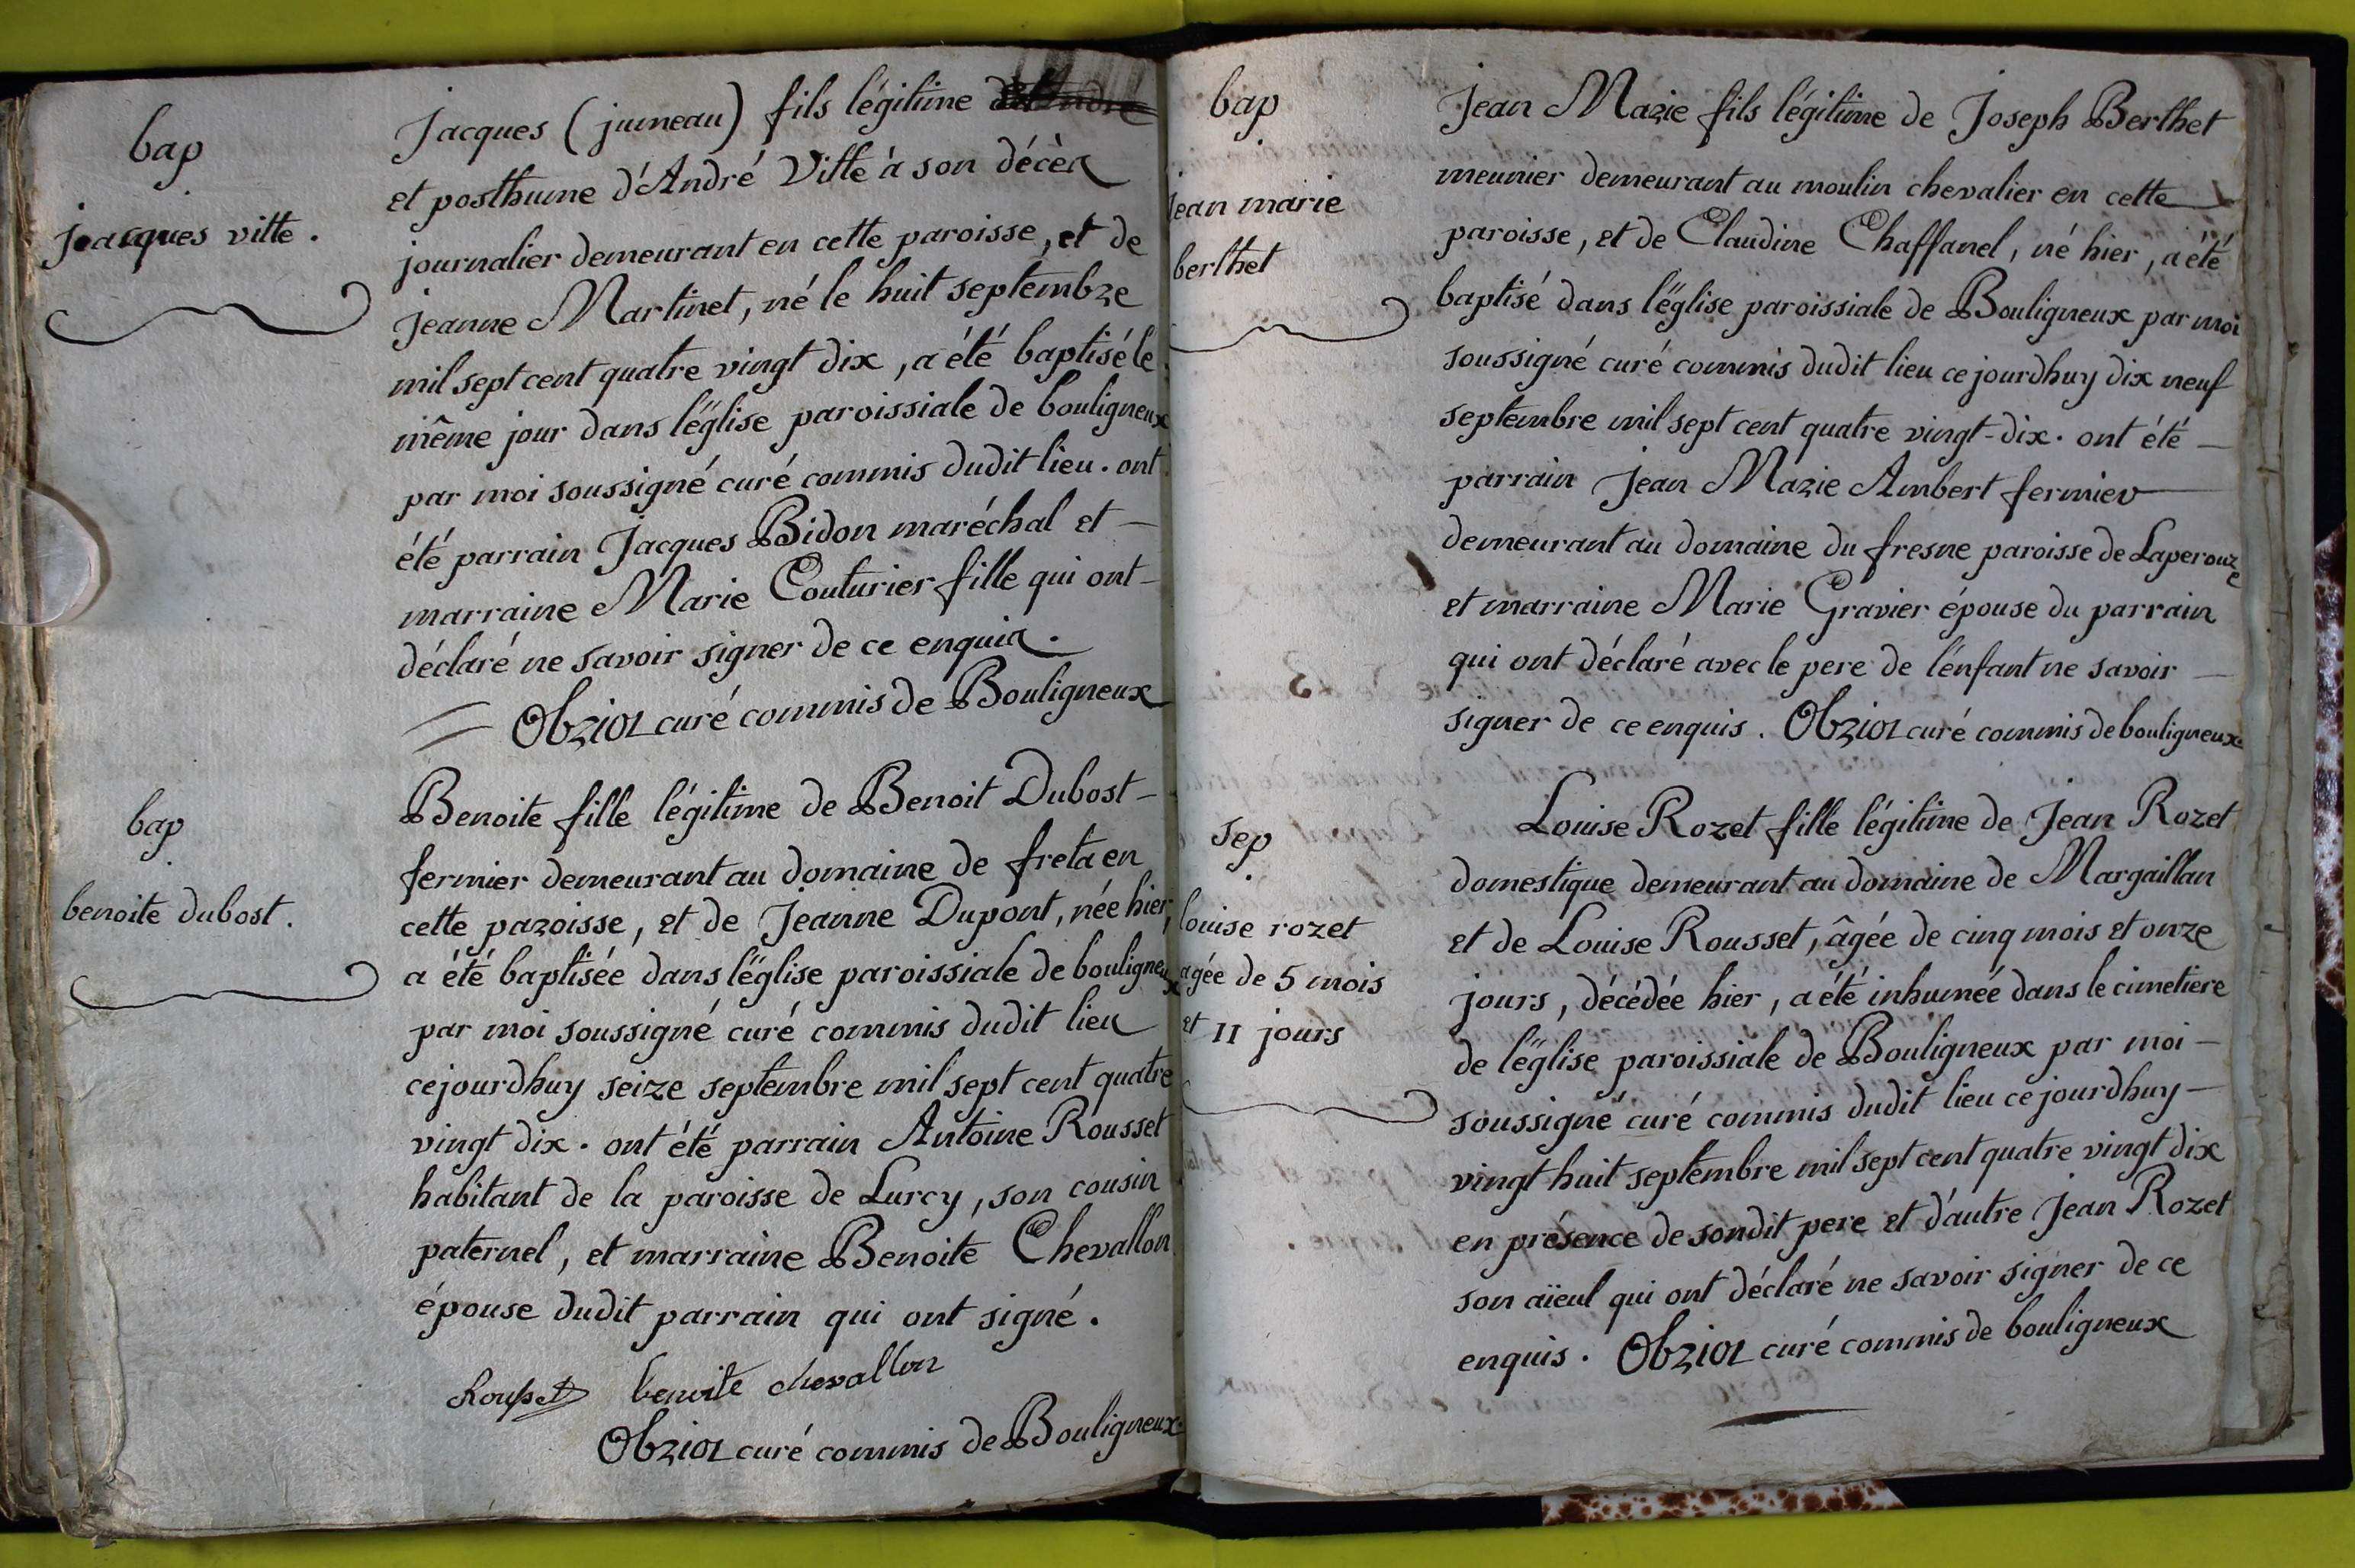 bap
jacques vitte.
Jacques (jumeau) fils légitime
et posthume d'André Vitte à son décès
journalier demeurant en cette paroisse, et de
jeanne Martinet, né le huit septembre
mil sept cent quatre vingt dix, a été baptisé le
même jour dans l'église paroissiale de bouligneux
par moi soussigné curé commis dudit lieu. ont
été parrain Jacques Bidon maréchal et -
marraine Marie Couturier fille qui ont -
déclaré ne savoir signer de ce enquis.
Obriot curé commis de Bouligneux
bap
benoite dubost.
Benoite fille légitime de Benoit Dubost -
fermier demeurant au domaine de freta en
cette paroisse, et de Jeanne Dupont, née hier,
a été baptisée dans l'église paroissiale de bouligneux
par moi soussigné curé commis dudit lieu
cejourdhuy seize septembre mil sept cent quatre
vingt dix. ont été parrain Antoine Rousset
habitant de la paroisse de Lurcy, son cousin
paternel, et marraine Benoite Chevallon
épouse dudit parrain qui ont signé.
Rousset benoite chevallon
Obriot curé commis de Bouligneux.
bap
jean marie
berthet
Jean Marie fils légitime de Joseph Berthet
meunier demeurant au moulin chevalier en cette
paroisse, et de Claudine Chaffanel, né hier, a été
baptisé dans l'église paroissiale de Bouligneux par moi
soussigné curé commis dudit lieu cejourdhuy dix neuf
septembre mil sept cent quatre vingt-dix. ont été -
parrain Jean Marie Ambert fermier
demeurant au domaine du fresne paroisse de Laperouze
et marraine Marie Gravier épouse du parrain
qui ont déclaré avec le pere de l'enfant ne savoir -
signer de ce enquis. Obriot curé commis de bouligneux.
sep
louise rozet
agée de 5 mois
et 11 jours
Louise Rozet fille légitime de Jean Rozet
domestique demeurant au domaine de Margaillan
et de Louise Rousset, âgée de cinq mois et onze
jours, décédée hier, a été inhumée dans le cimetiere
de l'église paroissiale de Bouligneux par moi -
soussigné curé commis dudit lieu cejourdhuy -
vingt huit septembre mil sept cent quatre vingt dix
en présence de sondit pere et d'autre Jean Rozet
son aïeul qui ont déclaré ne savoir signer de ce
enquis. Obriot curé commis de bouligneux